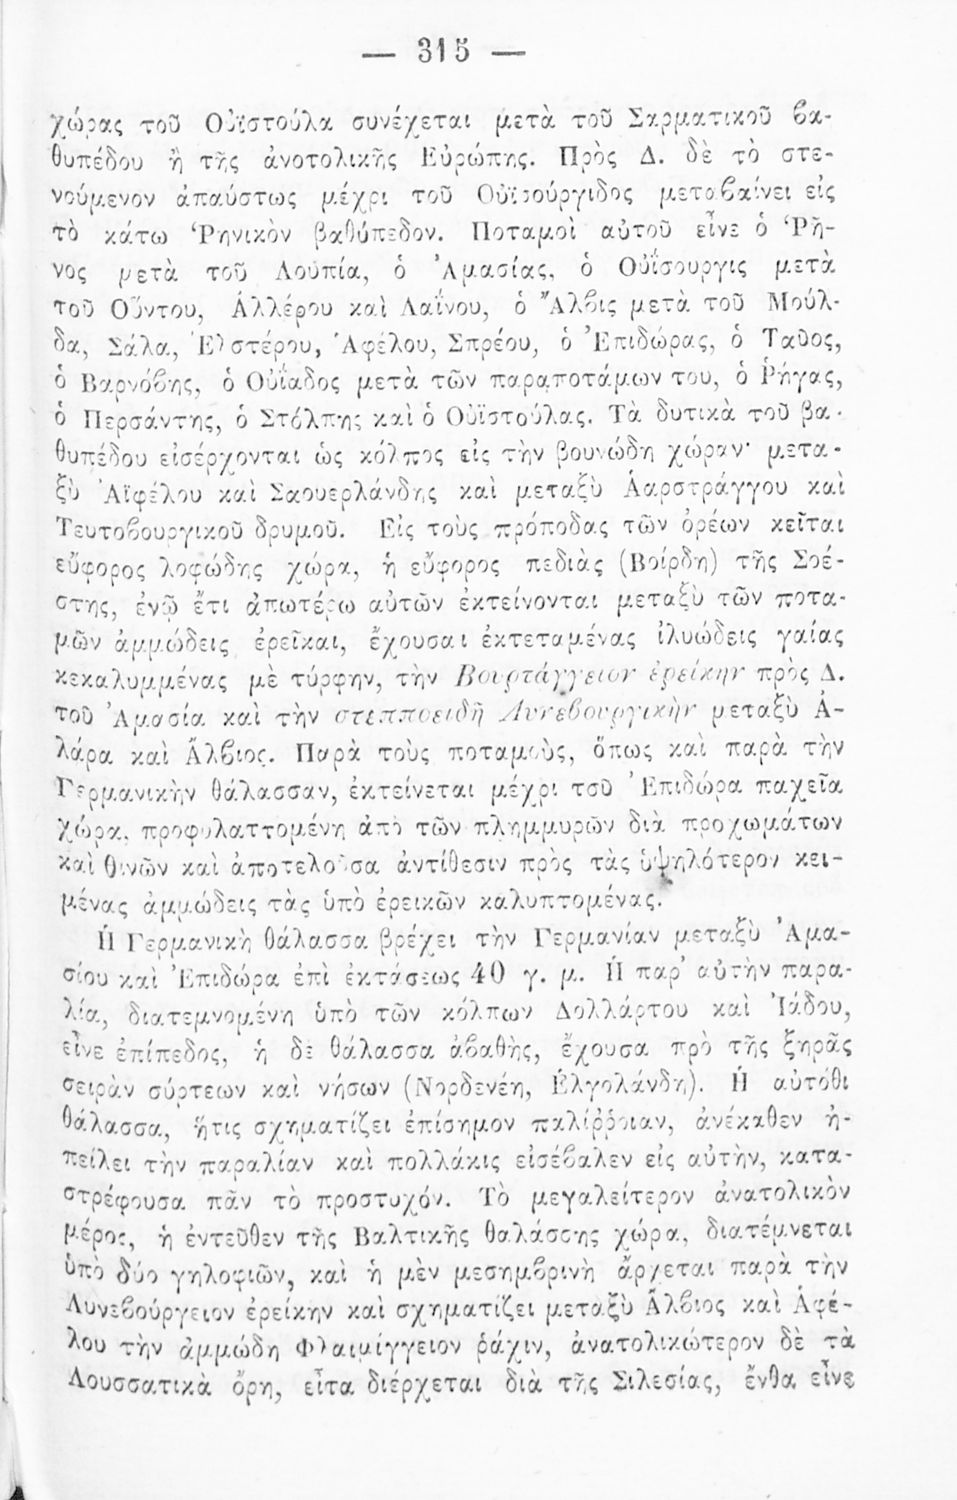 — 315 —
χώρας τοῦ Οὐϊστούλα συνέχεται μετὰ τοῦ Σαρματικοῦ βα-
θυπέδου ἢ τῆς ἀνοτολικῆς Εὐρώπης. Πρὸς Δ. δὲ τὸ στε-
νούμενον ἀπαύστως μέχρι τοῦ Οὐϊσούργιδος μεταβαίνει εἰς
τὸ κάτω Ῥηνικὸν βαθύπεδον. Ποταμοὶ αὐτοῦ εἶνε ὁ Ῥῆ-
νος μετὰ τοῦ Λουπία, ὁ Ἀμασίας, ὁ Οὐΐσουργις μετὰ
τοῦ Οὔντου, Ἀλλέρου καὶ Λαΐνου, ὁ Ἄλβις μετὰ τοῦ Μούλ-
δα, Σάλα, Ἐλστέρου, Ἀφέλου, Σπρέου, ὁ Ἐπιδώρας, ὁ Ταῦος,
ὁ Βαρνόβης, ὁ Οὐΐαδος μετὰ τῶν παραποτάμων του, ὁ Ῥήγας,
ὁ Περσάντης, ὁ Στόλπης καὶ ὁ Οὐϊστούλας. Τὰ δυτικὰ τοῦ βα-
θυπέδου εἰσέρχονται ὡς κόλπος εἰς τὴν βουνώδη χώραν· μετα-
ξὺ Ἀϊφέλου καὶ Σαουερλάνδης καὶ μεταξὺ Ἀαρστράγγου καὶ
Τευτοβουργικοῦ δρυμοῦ. Εἰς τοὺς πρόποδας τῶν ὀρέων κεῖται
εὔφορος λοφώδης χώρα, ἡ εὔφορος πεδιὰς (Βοίρδη) τῆς Σοέ-
στης, ἐνῷ ἔτι ἀπωτέρω αὐτῶν ἐκτείνονται μεταξὺ τῶν ποτα-
μῶν ἀμμώδεις ἐρεῖκαι, ἔχουσαι ἐκτεταμένας ἰλυώδεις γαίας
κεκαλυμμένας μὲ τύρφην, τὴν Βουρτάγγειον ἐρείκην πρὸς Δ.
τοῦ Ἀμασία καὶ τὴν στεπποειδῆ Λυνεβουργικὴν μεταξὺ Ἀ-
λάρα καὶ Ἄλβιος. Παρὰ τοὺς ποταμοὺς, ὅπως καὶ παρὰ τὴν
Γερμανικὴν θάλασσαν, ἐκτείνεται μέχρι τοῦ Ἐπιδώρα παχεῖα
χώρα, προφυλαττομένη ἀπὸ τῶν πλημμυρῶν διὰ προχωμάτων
καὶ θινῶν καὶ ἀποτελοῦσα ἀντίθεσιν πρὸς τὰς ὑψηλότερον κει-
μένας ἀμμώδεις τὰς ὑπὸ ἐρεικῶν καλυπτομένας.
Ἡ Γερμανικὴ θάλασσα βρέχει τὴν Γερμανίαν μεταξὺ Ἀμα-
σίου καὶ Ἐπιδώρα ἐπὶ ἐκτάσεως 40 γ. μ. Ἡ παρ’ αὐτὴν παρα-
λία, διατεμνομένη ὑπὸ τῶν κόλπων Δολλάρτου καὶ Ἰάδου,
εἶνε ἐπίπεδος, ἡ δὲ θάλασσα ἀβαθὴς, ἔχουσα πρὸ τῆς ξηρᾶς
σειρὰν σύρτεων καὶ νήσων (Νορδενέη, Ἑλγολάνδη). Ἡ αὐτόθι
θάλασσα, ἥτις σχηματίζει ἐπίσημον παλίῤῥοιαν, ἀνέκαθεν ἠ-
πείλει τὴν παραλίαν καὶ πολλάκις εἰσέβαλεν εἰς αὐτὴν, κατα-
στρέφουσα πᾶν τὸ προστυχόν. Τὸ μεγαλείτερον ἀνατολικὸν
μέρος, ἡ ἐντεῦθεν τῆς Βαλτικῆς θαλάσσης χώρα, διατέμνεται
ὑπὸ δύο γηλοφιῶν, καὶ ἡ μὲν μεσημβρινὴ ἄρχεται παρὰ τὴν
Λυνεβούργειον ἐρείκην καὶ σχηματίζει μεταξὺ Ἄλβιος καὶ Ἀφέ-
λου τὴν ἀμμώδη Φλαιμίγγειον ῥάχιν, ἀνατολικώτερον δὲ τὰ
Λουσσατικὰ ὄρη, εἶτα διέρχεται διὰ τῆς Σιλεσίας, ἔνθα εἶνε